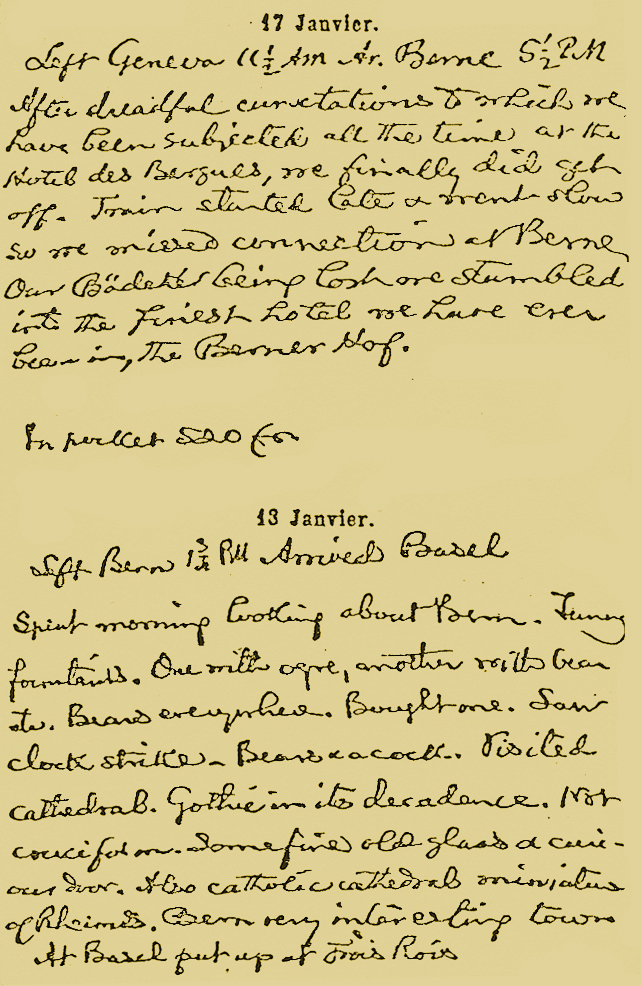 17 Janvier.
Left Geneva 11½ AM Ar. Berne 5½ P.M
After dreadful cunctations to which we
have been subjected all the time at the
Hotel des Bergues, we finally did get
off. Train started late & went slow
so we missed connection at Berne
Our Bädeker being lost we stumbled
into the finest hotel we have ever
been in, the Berner Hof.
In pocket 520 frs
13 Janvier.
Left Bern PM Arrived Basel
Spent morning looking about Bern. Funny
fountains. One with ogre, another with bear
etc. Bears everywhere. Bought one. Saw
clock strike - Bears & a cock. Visited
cathedral. Gothic in its decadence. Not
cruciform. Some fine old glass & curi-
our door. Also catholic cathedral miniature
of Rheims. Bern very interesting town
At Basel put up at Trois Rois